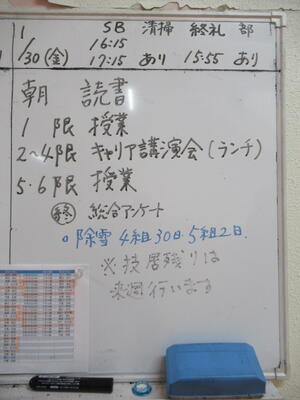 1/30(金) SB 16:15 17:15 清掃 あり 終礼 15:55 部 あり
朝 読書
1 限 授業
2~4限 キャリア講演会(ランチ)
5・6限 授業
終 総合アンケート
除雪 4組30日 5組2日
来週行います